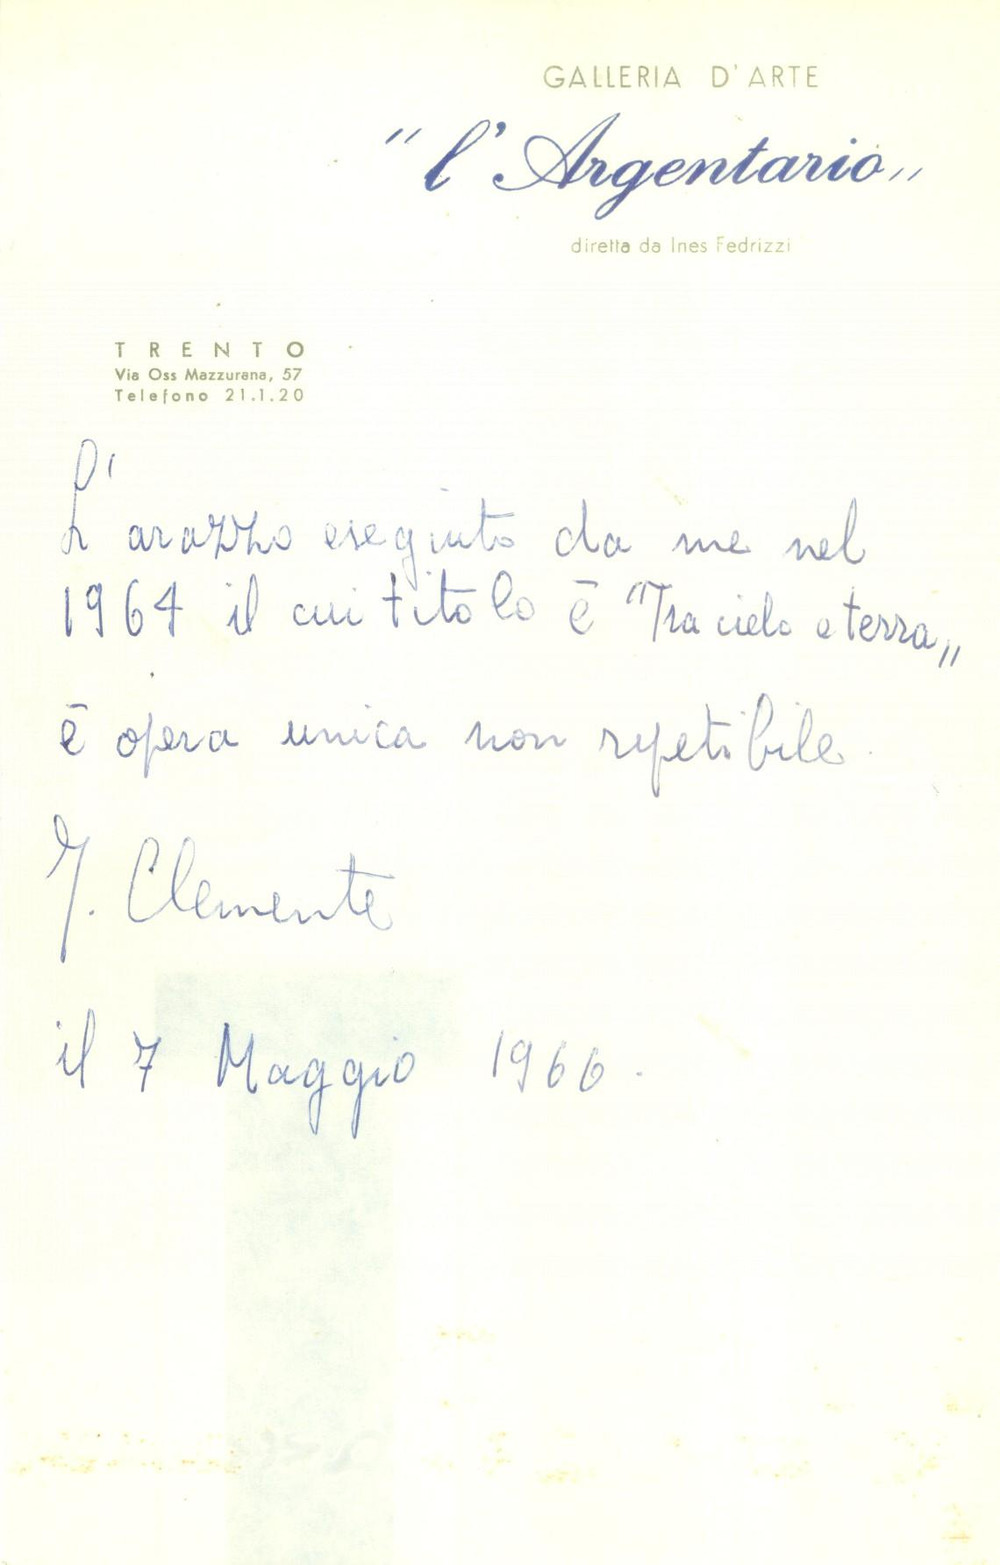 GALLERIA D'ARTE
"l'Argentario"
diretta da Ines Fedrizzi
TRENTO
Via Oss Mazzurana, 57
Telefono 21.1.20
L'arazzo eseguito da me nel
1964 il cui titolo è "Tra cielo e terra"
è opera unica non repetibile.
J. Clemente
il 7 Maggio 1966.